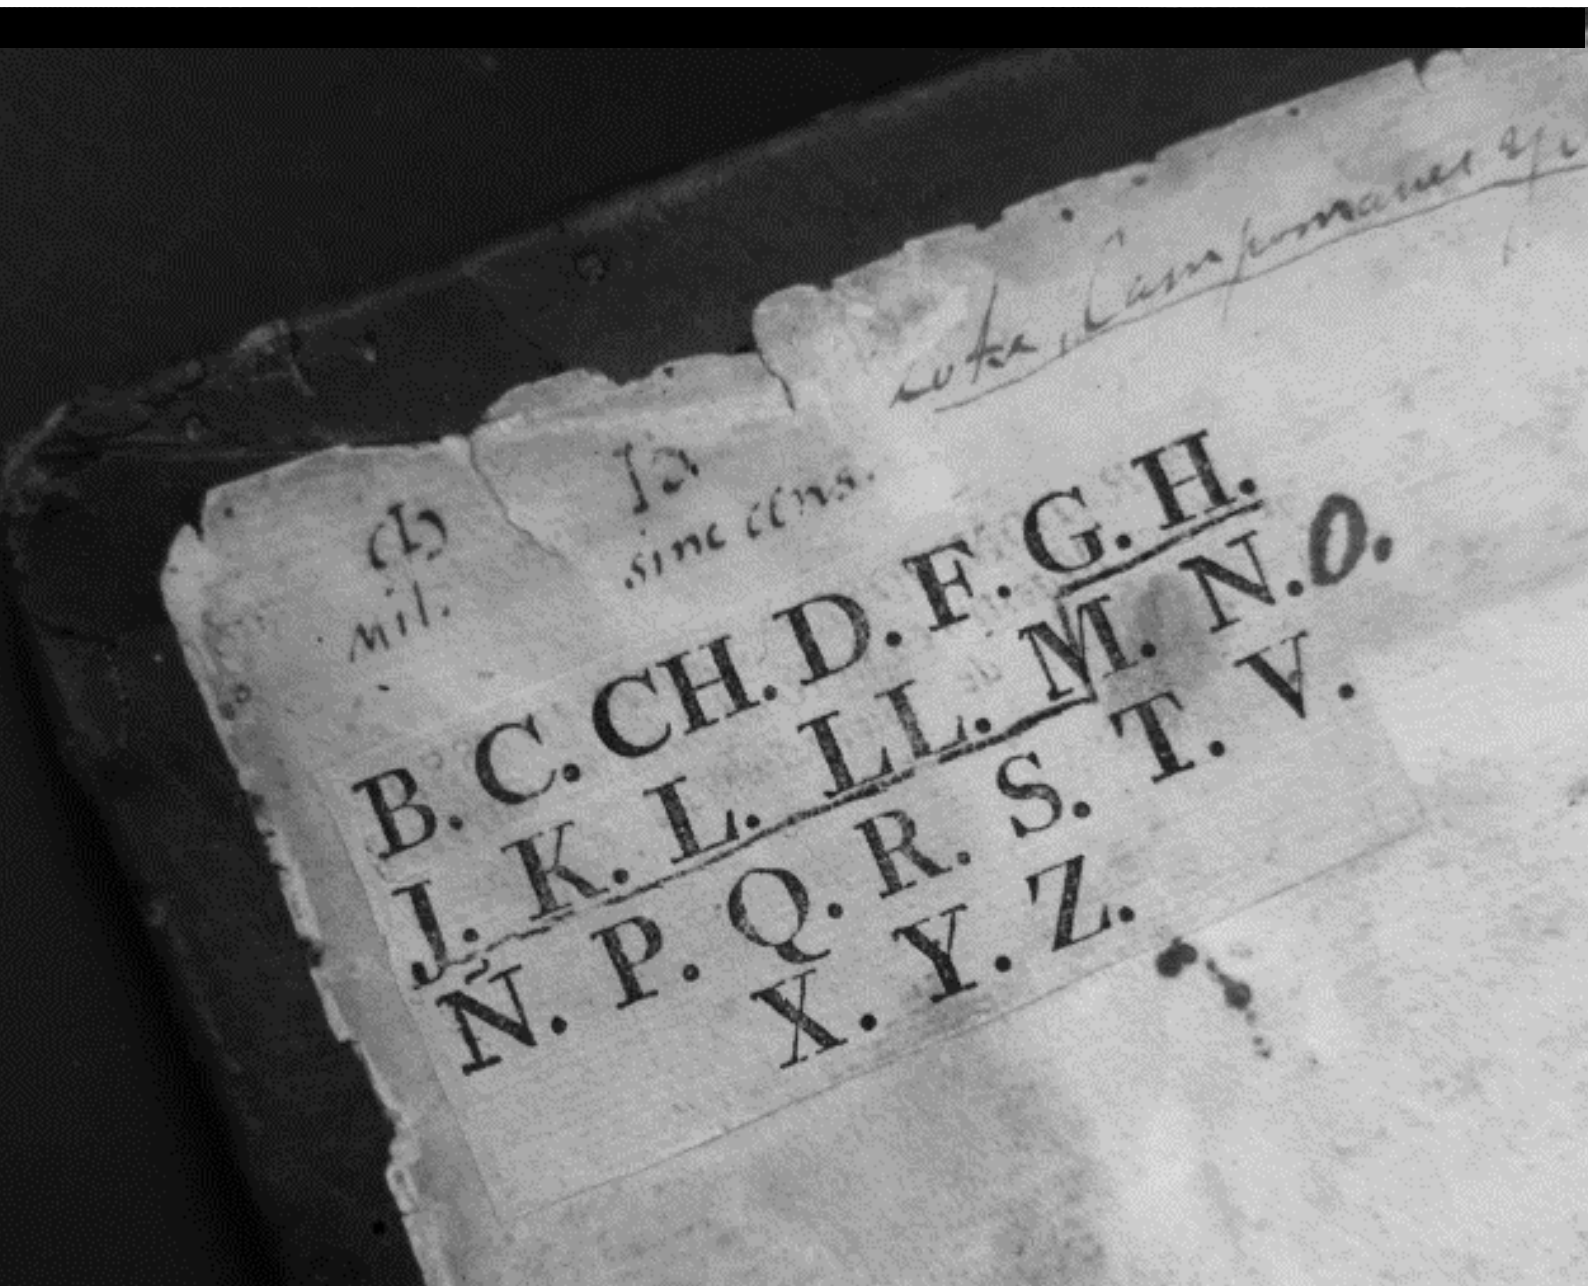 Campomanes
mil.
sine cens.
B. C. CH. D. F. G. H.
J. K. L. LL. M. N. O.
Ñ. P. Q. R. S. T. V.
X. Y. Z.